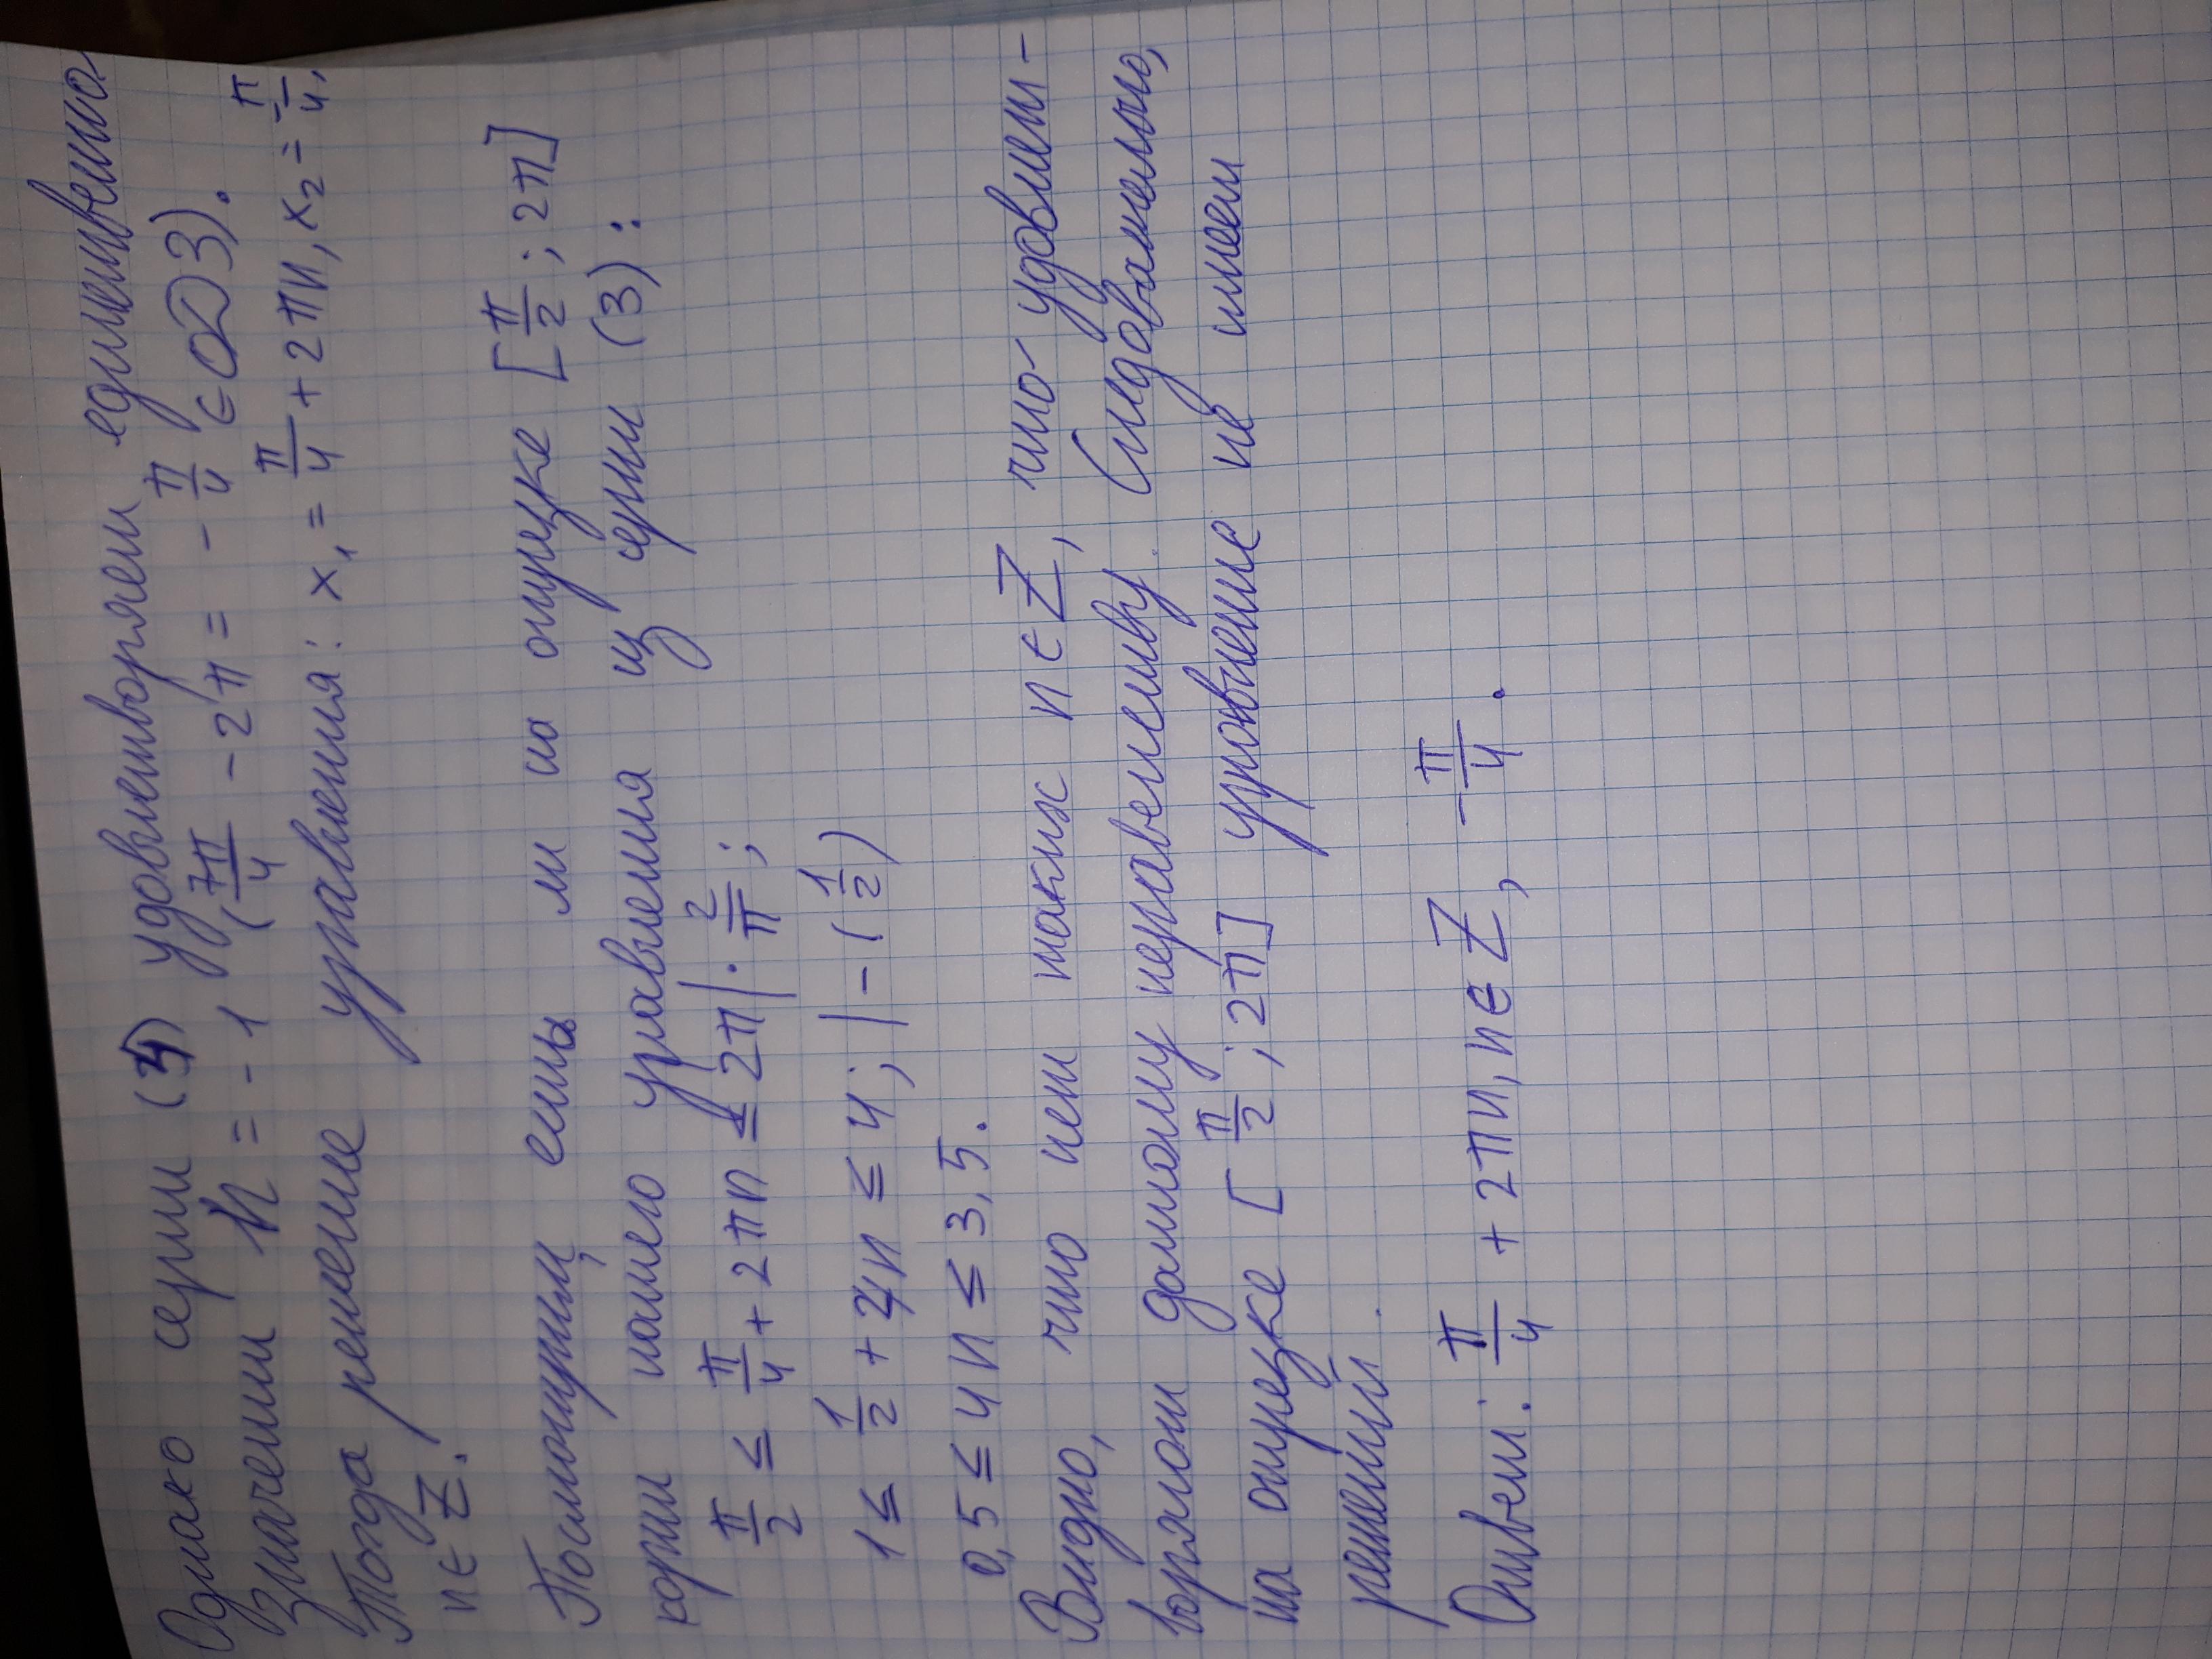 Однако серии (4) удовлетворяет единственное
значении n = - 1 (7π/4 - 2π = - π/4 ∈ ОДЗ).
Тогда решение уравнения: x₁ = π/4 + 2πn, x₂ = - π/4,
n ∈ Z.
Посмотрим, есть ли на отрезке [π/2; 2π]
корни нашего уравнения из серии (3):
π/2 ≤ π/4 + 2πn ≤ 2π | · 2/π;
1 ≤ 1/2 + 4n ≤ 4; | - (1/2)
0,5 ≤ 4n ≤ 3,5.
Видно, что нет таких n ∈ Z, что удовлет-
воряли данному неравенству. Следовательно,
на отрезке [π/2; 2π] уравнение не имеет
решений.
Ответ: π/4 + 2πn, n ∈ Z, - π/4.